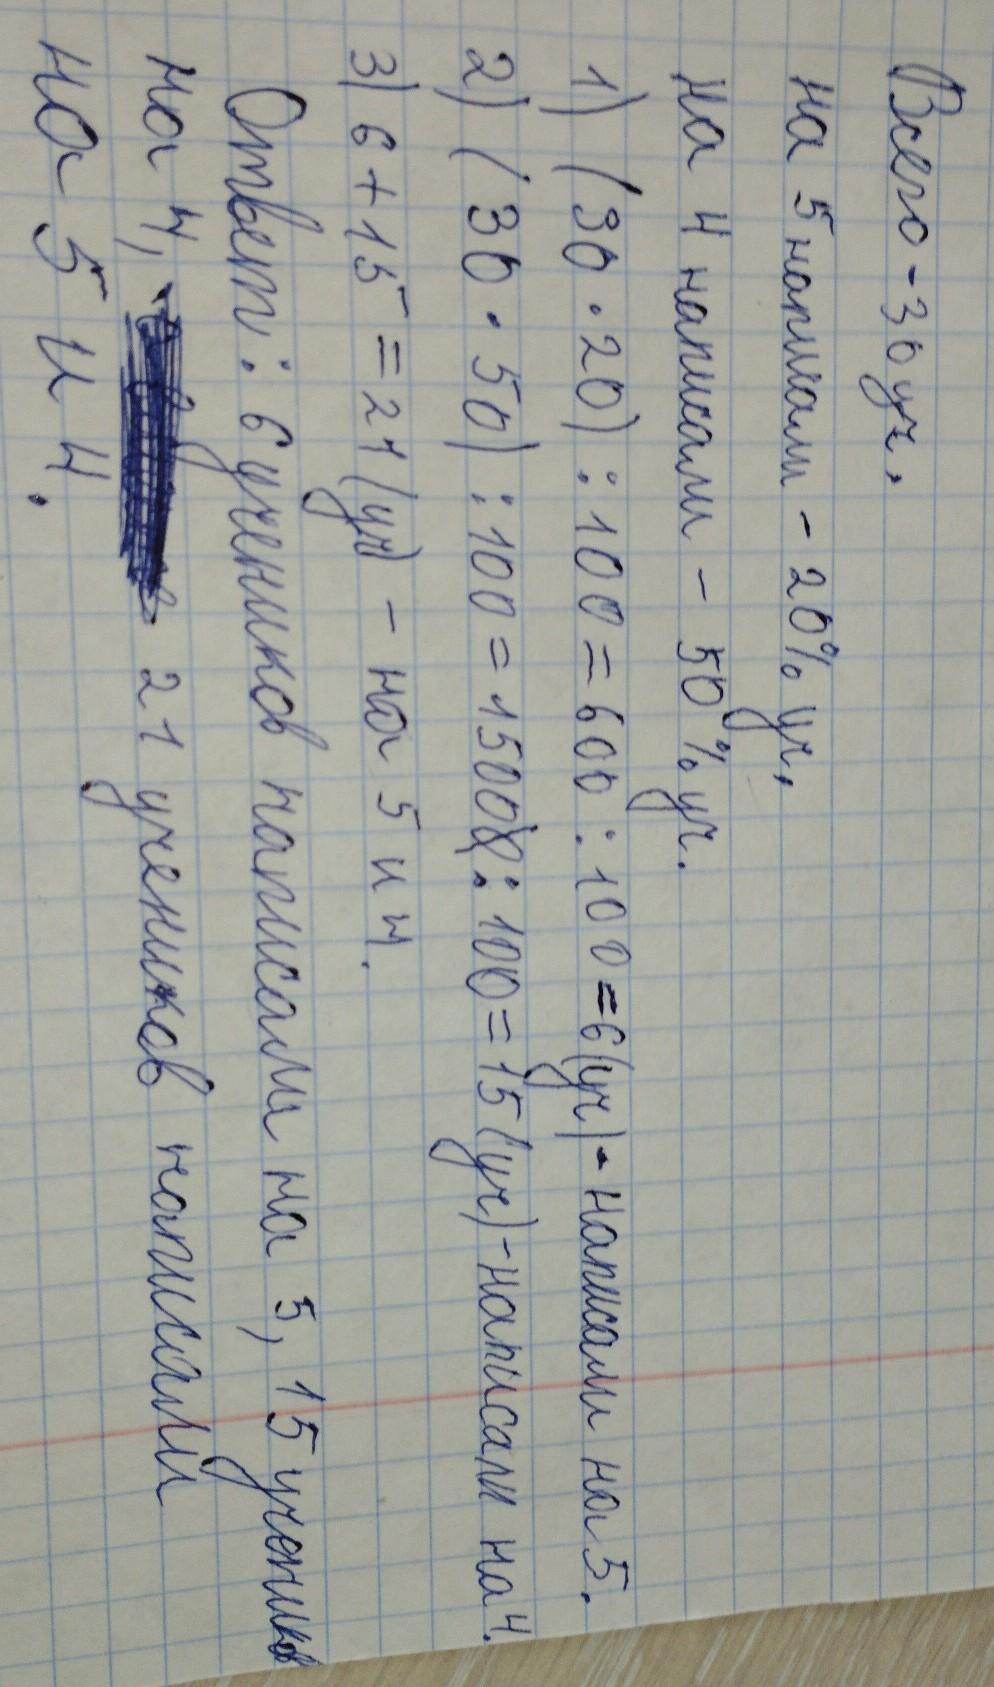 Всего - 30 уч.
на 5 написали - 20% уч.
на 4 написали - 50% уч.
1) (30 · 20) : 100 = 600 : 100 = 6 (уч) - написали на 5.
2) (30 · 50) : 100 = 1500 : 100 = 15 (уч) - написали на 4.
3) 6 + 15 = 21 (уч) - на 5 и 4.
Ответ: 6 учеников написали на 5, 15 учеников
на 4, 21 учеников написали
на 5 и 4.